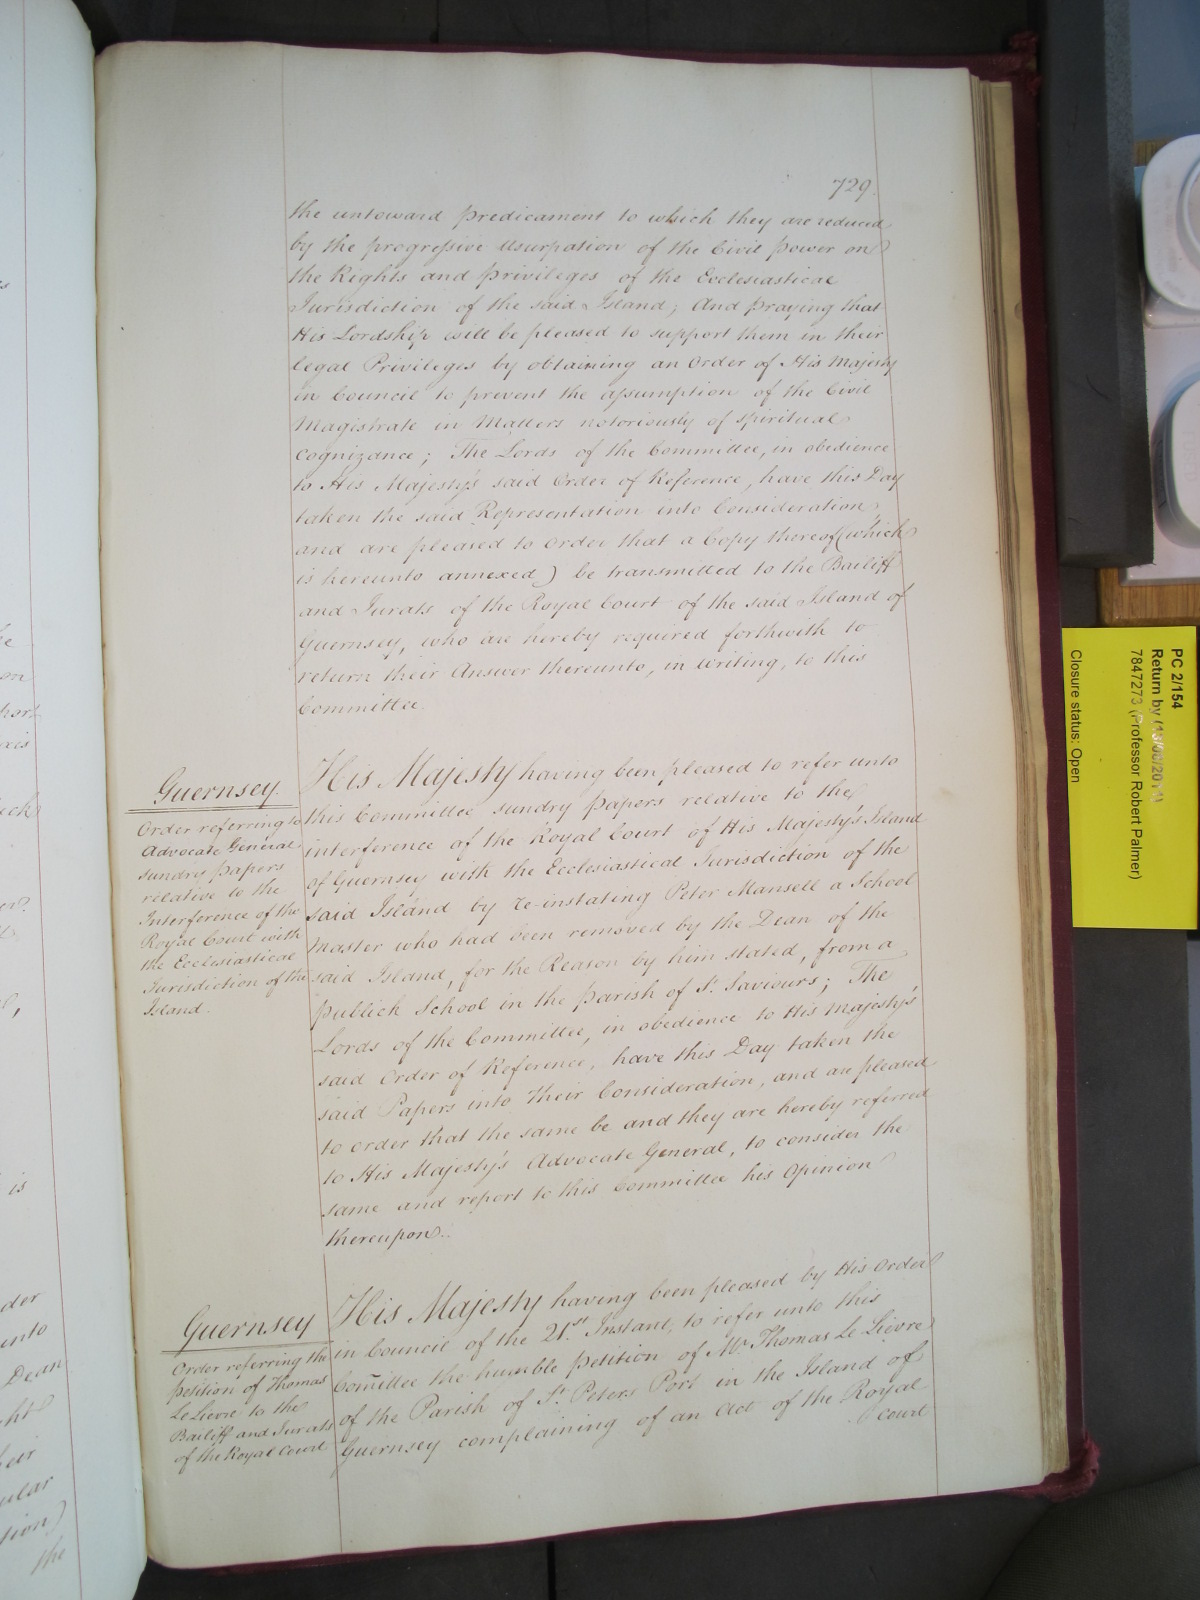 729.
the untoward predicament to which they are reduced
by the progressive Usurpation of the Civil Power on
the Rights and Privileges of the Ecclesiastical
Jurisdiction of the said Island; And praying that
His Lordship will be pleased to support them in their
legal Privileges by obtaining an Order of His Majesty
in Council to prevent the assumption of the Civil
Magistrate in Matters notoriously of spiritual
cognizance; The Lords of the Committee, in obedience
to His Majesty's said Order of Reference, have this Day
taken the said Representation into Consideration,
and are pleased to order that a Copy thereof (which
is hereunto annexed) be transmitted to the Bailiff
and Jurats of the Royal Court of the said Island of
Guernsey, who are hereby required forthwith to
return their Answer thereunto, in writing, to this
Committee.
Guernsey.
Order referring to
Advocate General
sundry papers
relative to the
Interference of the
Royal Court with
the Ecclesiastical
Jurisdiction of the
Island.
His Majesty having been pleased to refer unto
this Committee sundry papers relative to the
interference of the Royal Court of His Majesty's Island
of Guernsey with the Ecclesiastical Jurisdiction of the
said Island by re-instating Peter Mansell a School
Master who had been removed by the Dean of the
said Island, for the Reason by him stated, from a
publick School in the parish of St. Saviours; The
Lords of the Committee, in obedience to His Majesty's
said Order of Reference, have this Day taken the
said Papers into their Consideration, and are pleased
to order that the same be and they are hereby referred
to His Majesty's Advocate General, to consider the
same and report to this Committee his Opinion
thereupon.
Guernsey
Order referring the
petition of Thomas
Le Lievre to the
Bailiff and Jurats
of the Royal Court
His Majesty having been pleased by His Order
in Council of the 21st Instant, to refer unto this
Com̄ittee the humble petition of Mr. Thomas Le Lievre
of the Parish of St. Peters Port in the Island of
Guernsey complaining of an Act of the Royal
Court
PC 2/154
Return by
7847273 (Professor Robert Palmer)
Closure status: Open
der
unto
Dean
ular
the